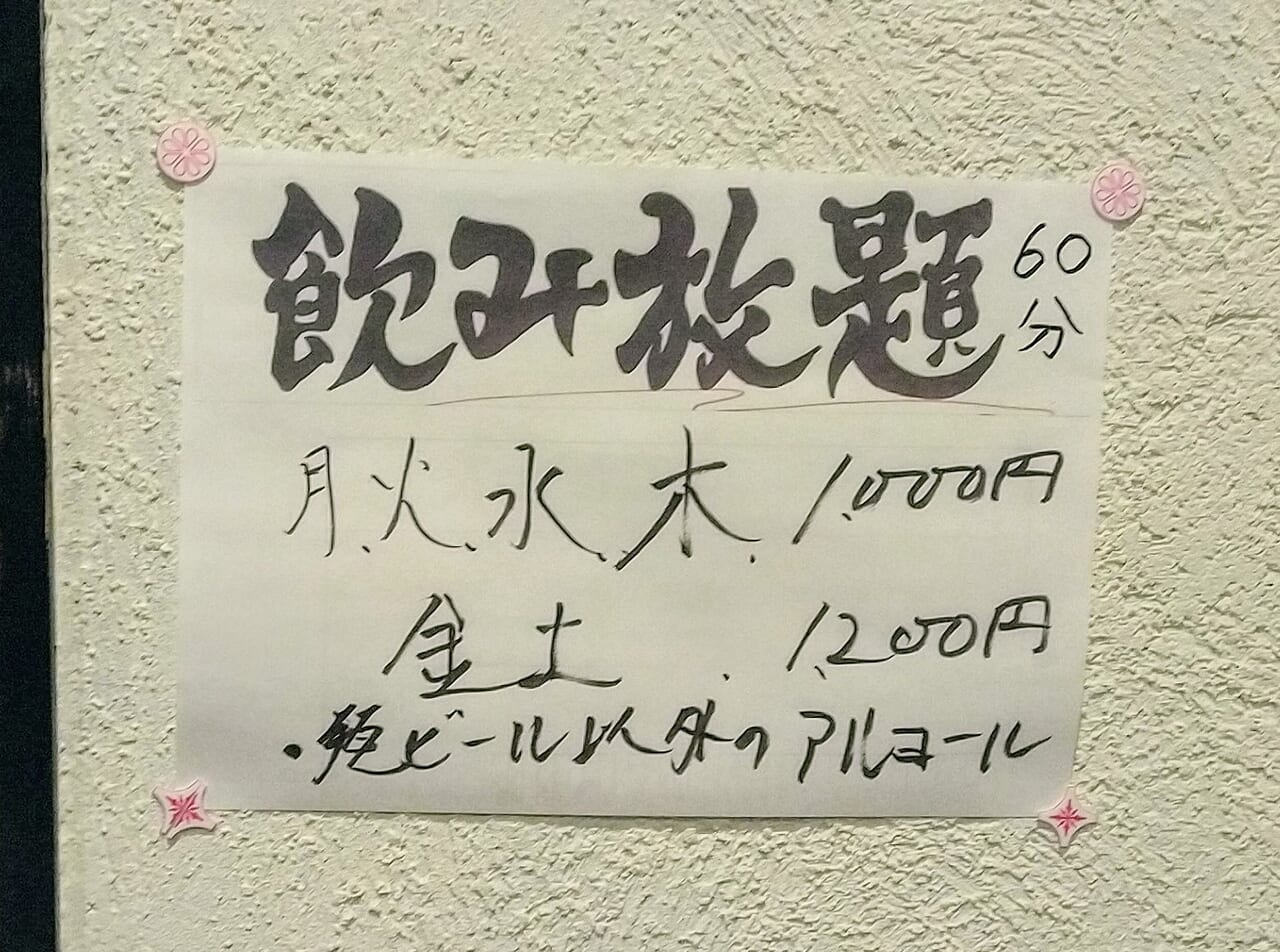 飲み放題 60分
月、火、水、木、 1,000円
金土、 1,200円
・瓶ビール以外のアルコール